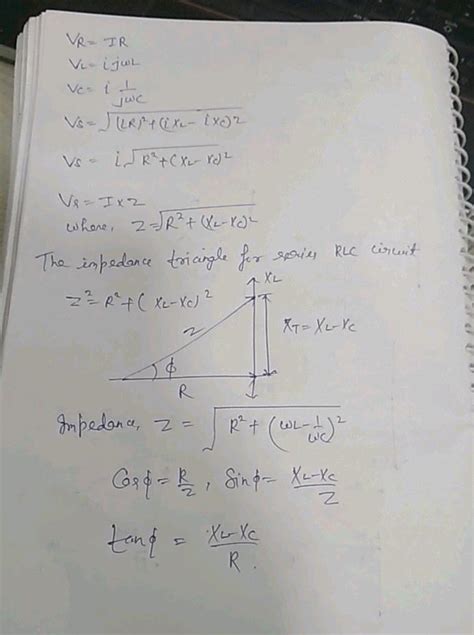 VR = IR
VL = i jωL
VC = i 1/jωC
VS = √(iR)²+(iXL - iXC)2
VS = i√R²+(XL-XC)2
VS = I×Z
where, Z=√R²+(XL-XC)2
The impedance triangle for series RLC circuit
XL
Z²=R²+(XL-XC)2
Z
XT=XL-XC
φ
R
Impedance, Z = √R²+(ωL-1/ωC)²
Cosφ=R/Z, Sinφ= XL-XC/Z
tanφ = XL-XC/R.